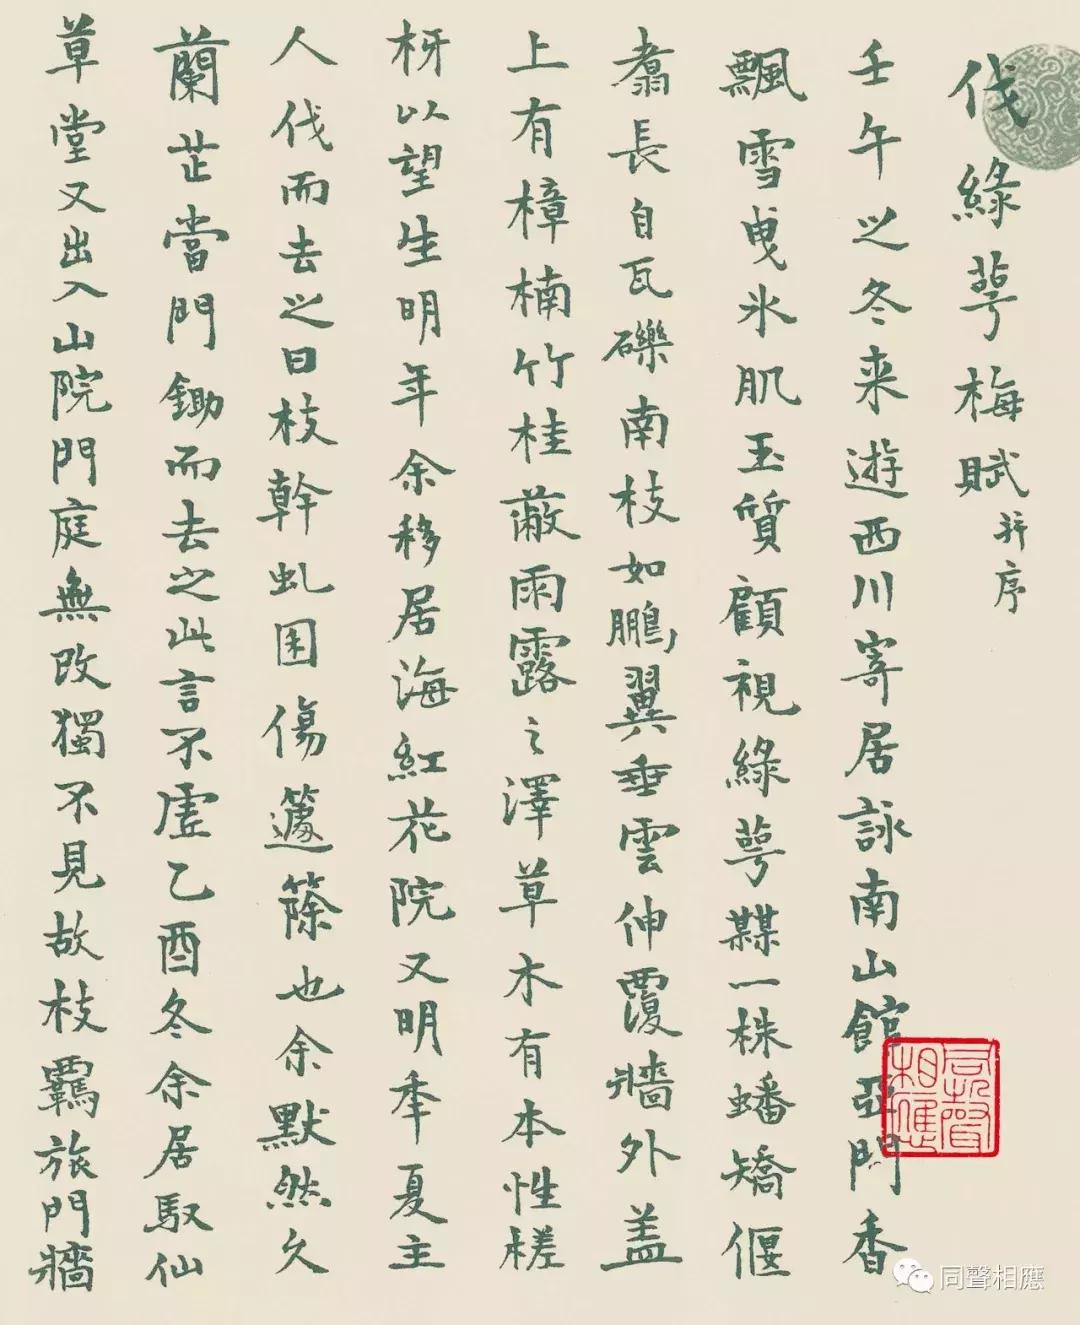 伐綠萼梅賦并序
壬午之冬来遊西川寄居詠南山館亞門香
飄雪曳氷肌玉質顧視綠萼楳一株蟠矯偃
翥長自瓦礫南枝如鵬翼垂雲伸覆牆外盖
上有樟楠竹桂蔽雨露之澤草木有本性槎
枒以望生明年余移居海紅花院又明秊夏主
人伐而去之曰枝幹虬囷傷籧篨也余默然久
蘭芷當門鋤而去之此言不虛乙酉冬余居馭仙
草堂又出入山院門庭無改獨不見故枝羈旅門牆
同聲相應
同聲相應